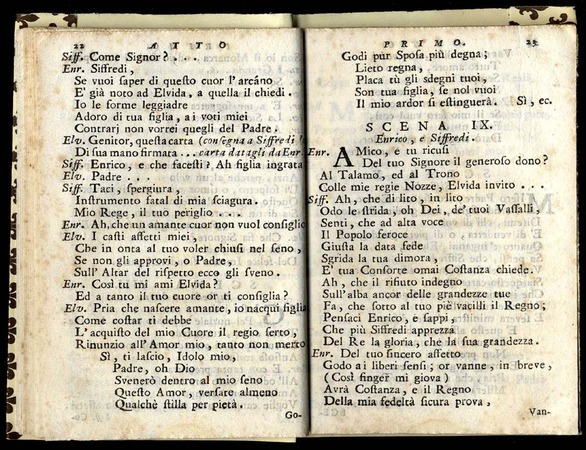 22 ATTO
Siff. Come Signor? . . .
Enr. Siffredi,
Se vuoi saper di questo cuor l'arcáno
E' già noto ad Elvida, a quella il chiedi.
Io le forme leggiadre
Adoro di tua figlia, a i voti miei
Contrarj non vorrei quegli del Padre.
Elv. Genitor, questa carta (consegna a Siffredi l
Di sua mano firmata ... carta datagli da Enr.
Siff. Enrico, e che facesti? Ah figlia ingrata
Elv. Padre . . .
Siff. Taci, spergiura,
Instrumento fatal di mia sciagura.
Mio Rege, il tuo periglio . . .
Enr. Ah, che un amante cuor non vuol consiglio
Elv. I casti affetti miei,
Che in onta al tuo voler chiusi nel seno,
Se non gli approvi, o Padre,
Sull' Altar del rispetto ecco gli sveno.
Enr. Così tu mi ami Elvida?
Ed a tanto il tuo cuore or ti consiglia?
Elv. Pria che nascere amante, io nacqui figlia
Come costar ti debbe
L'acquisto del mio Cuore il regio serto,
Rinunzio all'Amor mio, tanto non merto
Sì, ti lascio, Idolo mio,
Padre, oh Dio
Svenerò dentro al mio seno
Questo Amor, versare almeno
Qualchè stilla per pietà.
Go-
PRIMO. 23
Godi pur Sposa più degna;
Lieto regna,
Placa tù gli sdegni tuoi,
Son tua figlia, se nol vuoi
Il mio ardor si estinguerà. Sì, ec.
SCENA IX.
Enrico, e Siffredi.
Enr. AMico, e tu ricusi
Del tuo Signore il generoso dono?
Al Talamo, ed al Trono
Colle mie regie Nozze, Elvida invito . . .
Siff. Ah, che di lito, in lito
Odo le strida, oh Dei, de' tuoi Vassalli,
Senti, che ad alta voce
Il Popolo feroce
Giusta la data fede
Sgrida la tua dimora,
E' tua Consorte omai Costanza chiede.
Ah, che il rifiuto indegno
Sull'alba ancor delle grandezze tue
Fa, che sotto al tuo piè vacilli il Regno;
Pensaci Enrico, e sappi,
Che più Siffredi apprezza
Del Re la gloria, che la sua grandezza.
Enr. Del tuo sincero affetto
Godo ai liberi sensi; or vanne, in breve,
(Così finger mi giova)
Avrà Costanza, e il Regno
Della mia fedeltà sicura prova,
Van-